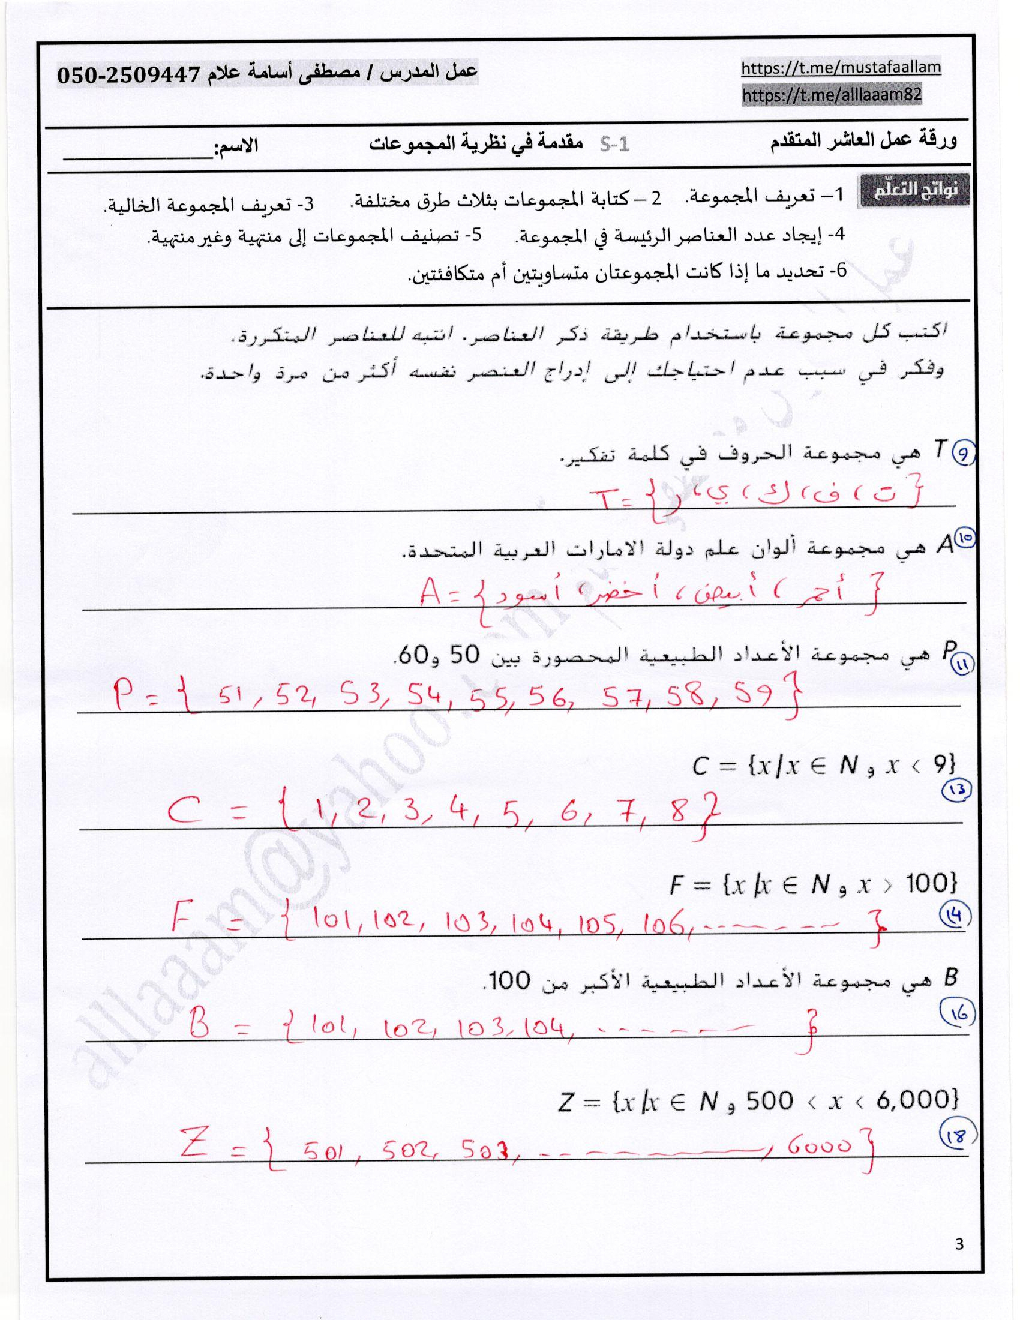 https://t.me/mustafaallam
عمل المدرس / مصطفى أسامة علام 2509447-050
https://t.me/alllaaam82
ورقة عمل العاشر المتقدم S-1 مقدمة في نظرية المجموعات الاسم: ____________
نواتج التعلّم
1– تعريف المجموعة. 2 – كتابة المجموعات بثلاث طرق مختلفة. 3- تعريف المجموعة الخالية.
4- إيجاد عدد العناصر الرئيسة في المجموعة. 5- تصنيف المجموعات إلى منتهية وغير منتهية.
6- تحديد ما إذا كانت المجموعتان متساويتين أم متكافئتين.
اكتب كل مجموعة باستخدام طريقة ذكر العناصر. انتبه للعناصر المتكررة.
وفكر في سبب عدم احتياجك إلى إدراج العنصر نفسه أكثر من مرة واحدة.
9 T هي مجموعة الحروف في كلمة تفكير.
T = { ت ، ف ، ك ، ي ، ر }
10 A هي مجموعة ألوان علم دولة الامارات العربية المتحدة.
A = { أحمر ، أبيض ، أخضر ، أسود }
11 P هي مجموعة الأعداد الطبيعية المحصورة بين 50 و60.
P = { 51 , 52, 53, 54, 55, 56, 57, 58, 59 }
C = {x/x ∈ N و x < 9}
13
C = { 1, 2, 3, 4, 5, 6, 7, 8 }
F = {x/x ∈ N و x > 100}
14
F = { 101, 102, 103, 104, 105, 106, ------- }
B هي مجموعة الأعداد الطبيعية الأكبر من 100.
16
B = { 101, 102, 103, 104, ------ }
Z = {x/x ∈ N و 500 < x < 6,000}
18
Z = { 501, 502, 503, -------, 6000 }
3
alllaaam@yahoo.com